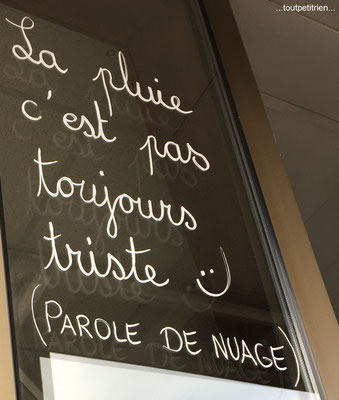 ...toutpetitrien...
La pluie
c'est pas
toujours
triste :)
(PAROLE DE NUAGE)